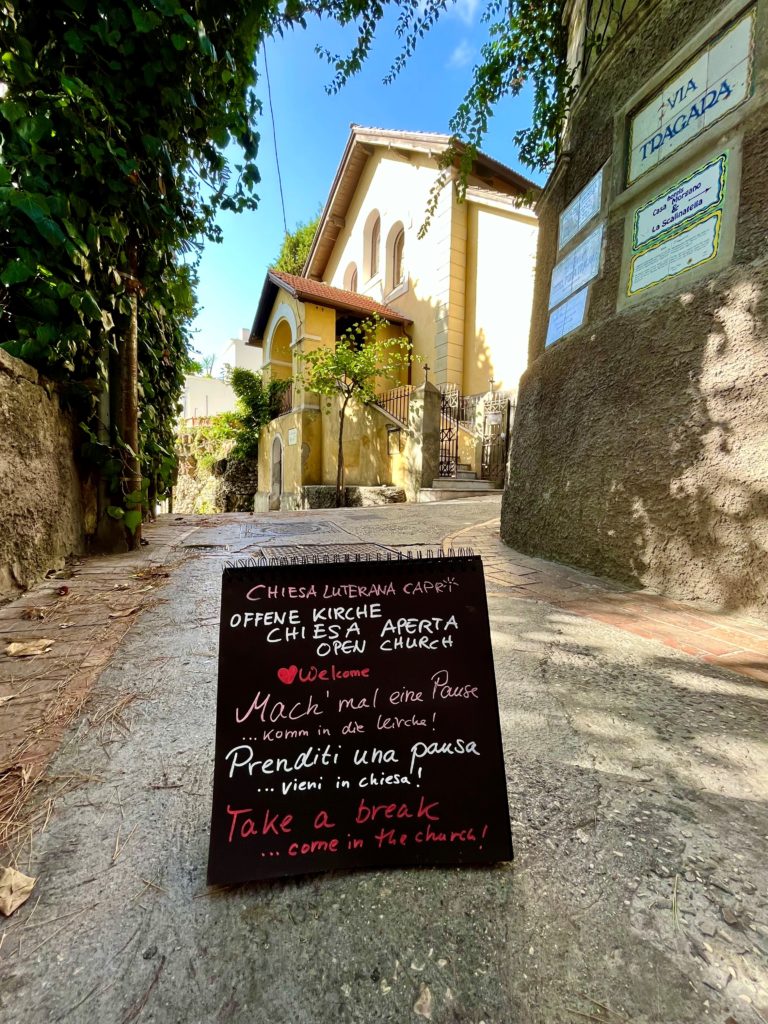 VIA
TRAGARA
hotels
Casa Morgano
&
La Scalinatella
CHIESA LUTERANA CAPRI
OFFENE KIRCHE
CHIESA APERTA
OPEN CHURCH
Welcome
Mach' mal eine Pause
...komm in die Kirche!
Prenditi una pausa
...vieni in chiesa!
Take a break
...come in the church!